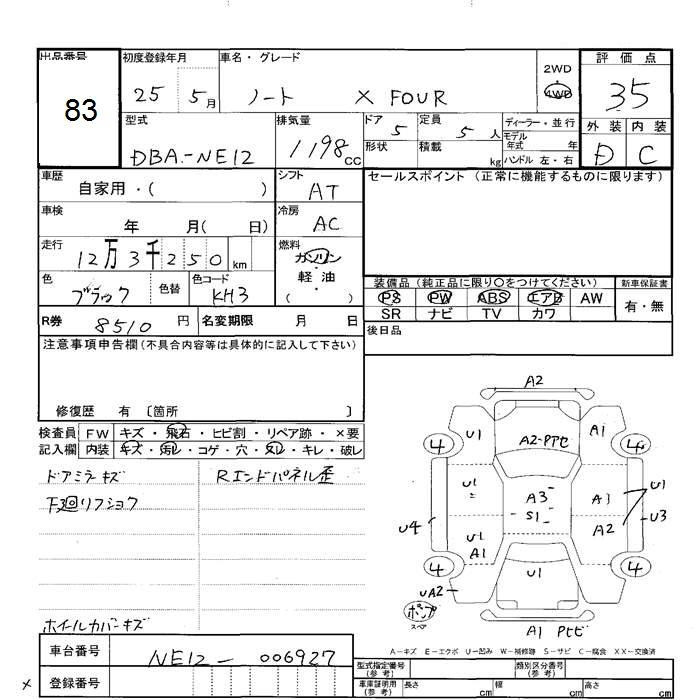 出品番号 初度登録年月 車名・グレード 2WD 評価点
83 25 5月 ノート X FOUR 4WD 35
型式 排気量 ドア 5 定員 5人 ディーラー・並行 外装 内装
DBA-NE12 1198cc 形状 積載 kg モデル年式 年 D C
ハンドル 左・右
車歴 自家用・( ) シフト AT セールスポイント (正常に機能するものに限ります)
車検 年 月( 日) 冷房 AC
走行 12万3千250km 燃料 ガソリン
軽・油
( )
色 ブラック 色替 色コード KH3 装備品 (純正品に限り○をつけてください) 新車保証書
PS PW ABS エアB AW 有・無
SR ナビ TV カワ
R券 8510円 名変期限 月 日 後日品
注意事項申告欄 (不具合内容等は具体的に記入して下さい)
修復歴 有 〔箇所 〕
検査員 FW キズ・飛石・ヒビ割・リペア跡・×要
記入欄 内装 キズ・汚レ・コゲ・穴・スレ・キレ・破レ
ドアミラーキズ Rエンドパネル歪
下廻リフショク
ホイールカバーキズ
A2
U1 A2-PTセ A1
4 4
U1 A3 A3 U1
S1
U4 A2 U3
U1
A1
4 U1 4
UA2
スペア
A1 Pセビ
A-キズ E-エクボ U-凹み W-補修跡 S-サビ C-腐食 XX-交換済
車台番号 NE12-006927 型式指定番号(参考) 類別区分番号(参考)
× 登録番号 車庫証明用(参考) 長さ cm 幅 cm 高さ cm